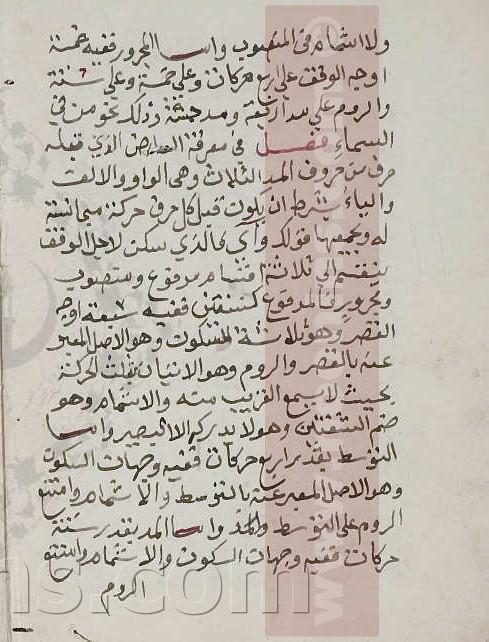 ولا اشمام في المنصوب واما المجرور ففيه خمسة
اوجه الوقف على اربع حركات وعلى خمسة وعلى ستة
والروم على مد اربعة ومد خمسة وذلك نحو من في
السماء فصل في معرفة العارض الذي قبله
حرف من حروف المد الثلاث وهي الواو والالف
والياء بشرط ان يكون قبل كل حرف حركة مجانسة
له ويجمعها قولك واي فالذي سكن لاجل الوقف
ينقسم الى ثلاثة اقسام مرفوع ومنصوب
ومجرور فالمرفوع كنستعين ففيه سبعة اوجه
القصر وهو ثلاثة السكوت وهو الاصل المعبر
عنه بالقصر والروم وهو الاتيان بثلث الحركة
بحيث لا يسمع القريب منه والاشمام وهو
ضم الشفتين وهو لا يدركه الا البصير واما
التوسط بقدر اربع حركات ففيه وجهات السكون
وهو الاصل المعبر عنه بالتوسط والاشمام وامتنع
الروم على التوسط والمد واما المد بقدر ستة
حركات ففيه وجهات السكون والاشمام وامتنع
الروم
ns.com
www